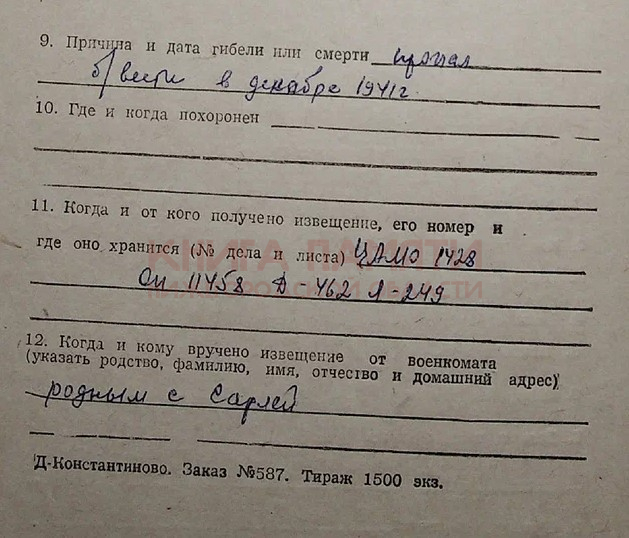 9. Причина и дата гибели или смерти пропал
б/вести в декабре 1941г.
10. Где и когда похоронен
11. Когда и от кого получено извещение, его номер и
где оно хранится (№ дела и листа) ЦАМО 1428
КНИГА ПАМЯТИ
Оп 11458 Д-462 Л-249
НИЖЕГОРОДСКОЙ ОБЛАСТИ
12. Когда и кому вручено извещение от военкомата
(указать родство, фамилию, имя, отчество и домашний адрес)
родным с Сарлей
Д-Константиново. Заказ №587. Тираж 1500 экз.